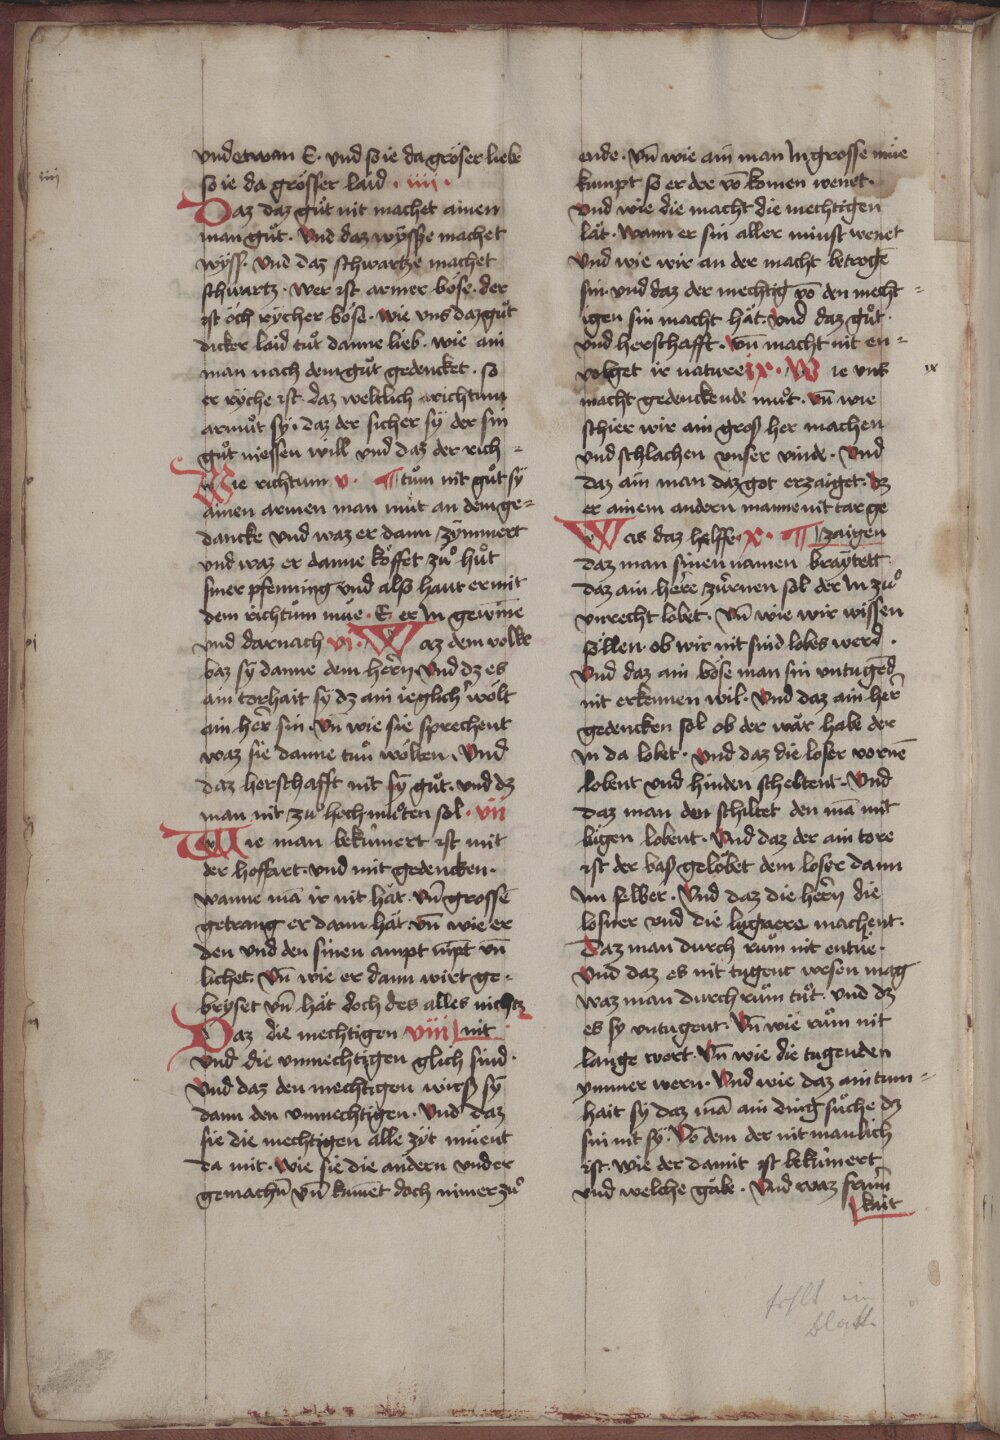 vnd etwan E. vnd so ie da gröser liebe
so ie da grösser laid · iiii ·
Daz daz gůt nit machet ainen
man gůt. Vnd daz wysse machet
wyss. Vnd daz schwartze machet
schwartz. wer ist armer böse. der
ist öch rycher böse. wie vns daz gůt
dicker laid tůt danne lieb. wie ain
man nach dem gůt gedencket. so
er ryche ist. daz weltlich richtum
armůt sÿ. daz der sicher sÿ der sin
gůt niessen will vnd daz der rich-
Wie richtum v. ¶ tům nit gůt sÿ
ainen armen man můt an dem ge-
dancke vnd waz er dann zÿmmert
vnd waz er danne köffet zů hůt
siner pfenning vnd also haut er mit
dem richtům müe. E er In gewinne
vnd darnach vi. Waz dem volke
baz sÿ danne dem herñ. Vnd dz es
ain torhait sÿ dz ain ieglich' wölt
ain her sin. Vñ wie sie sprechent
waz sie danne tůn wölten. Vnd
daz herschafft nit sÿ gůt. vnd dz
man nit zů hochmůten sol. vii
Wie man bekümert ist mit
der hoffart. vnd mit gedencken.
wanne mā ir nit hät. Vñ grossē
getrang er dann hät. vñ wie er
den vnd den sinen ampt nīpt vñ
lichet. Vñ wie er dann wirt ge-
bryset vñ hät doch des alles nichtz
Daz die mechtigen viii nit
vnd die vnmechtigen glich sind.
Vnd daz den mechtigen wirs sÿ
dann den vnmechtigen. Vnd daz
sie die mechtigen alle zÿt müent
da mit. wie sie die andern vnder
gemachñ vñ kumēt doch nimer zů
ende. Vñ wie ain man In grosse müe
kumpt so er dar vō komen wenet.
Vnd wie die macht die mechtigen
lät. Wann er sin aller minst wenet
Vnd wie wir an der macht betroge
sin. vnd daz der mechtig vō den mecht-
igen sin macht hät. Vnd daz gůt.
vnd herschafft. Vñ macht nit en-
volget ir nature ix. Wie vns
macht gedenckende můt. Vñ wie
schier wir ain gros her machen
vnd schlachen vnser vinde. Vnd
daz ain man daz got erzaiget. dz
er ainem andern manne nit tar ge
Was daz helffe x. ¶ zaigen
daz man sinen namen braÿtett
daz ain herre zürnen sol der In zů
vnrecht lobet. Vñ wie wir wissen
söllen. ob wir nit sind lobes werd.
Vnd daz ain böse man sin vntugēd
nit erkennen wil. Vnd daz ain her
gedencken sol ob der wär habe der
In da lobet. Vnd daz die loser vornē
lobent vnd hinden scheltent. Vnd
daz man den schiltet den mā mit
lugen lobent. Vnd daz der ain tore
ist der bas gelöbet dem loser dann
Im selber. Vnd daz die herñ die
losner vnd die lugnere machent.
Daz man durch rům nit entüe.
Vnd daz es nit tugent wesen mag
waz man durch rům tůt. vnd dz
es sy vntugent. Vñ wie rům nit
lange wert. Vñ wie die tugenden
ymmer wern. Vnd wie daz ain tum-
hait sÿ daz mā ain ding sůche dz
sin nit sÿ. Vō dem der nit manlich
ist. wie der damit ist bekümert
vnd welche gäbe. Vnd waz
kait
iiii
v
vi
ix
fehlt ein
Blatt.